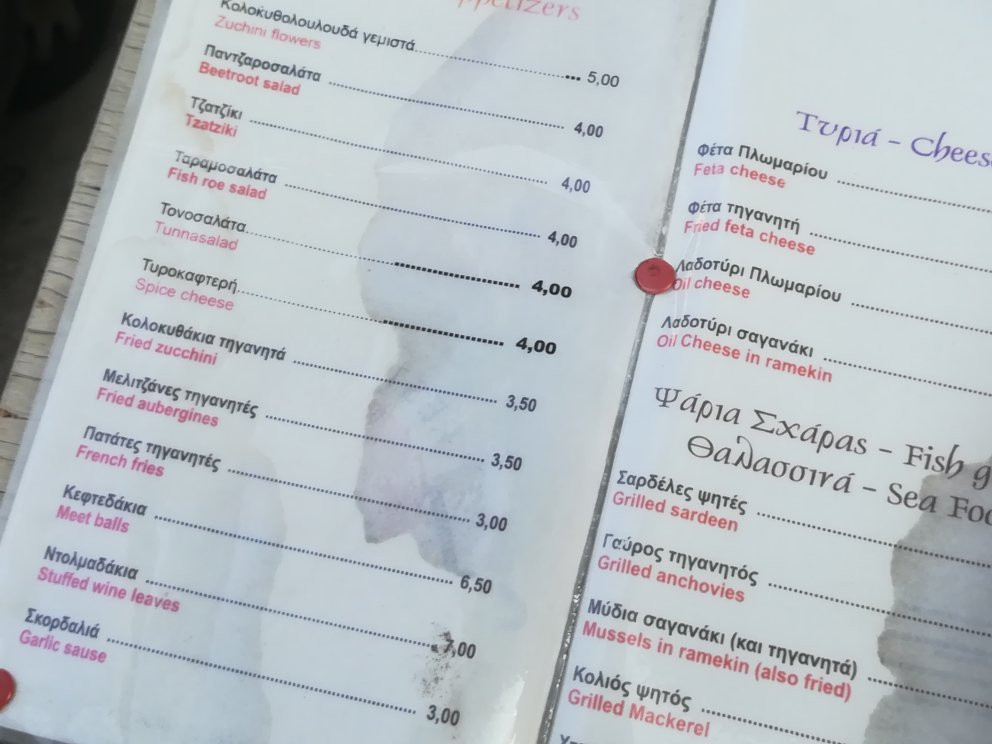 Κολοκυθολουλουδά γεμιστά 5,00
Zuchini flowers
Παντζαροσαλάτα 4,00
Beetroot salad
Τζατζίκι 4,00
Tzatziki
Ταραμοσαλάτα 4,00
Fish roe salad
Τονοσαλάτα 4,00
Tunnasalad
Τυροκαφτερή 4,00
Spice cheese
Κολοκυθάκια τηγανητά 3,50
Fried zucchini
Μελιτζάνες τηγανητές 3,50
Fried aubergines
Πατάτες τηγανητές 3,00
French fries
Κεφτεδάκια 6,50
Meet balls
Ντολμαδάκια 7,00
Stuffed wine leaves
Σκορδαλιά 3,00
Garlic sause
Τυριά -
Φέτα Πλωμαρίου
Feta cheese
Φέτα τηγανητή
Fried feta cheese
Λαδοτύρι Πλωμαρίου
Oil cheese
Λαδοτύρι σαγανάκι
Oil Cheese in ramekin
Ψάρια Σχάρας - Fish
Θαλασσινά - Sea
Σαρδέλες ψητές
Grilled sardeen
Γαύρος τηγανητός
Grilled anchovies
Μύδια σαγανάκι (και τηγανητά)
Mussels in ramekin (also fried)
Κολιός ψητός
Grilled Mackerel